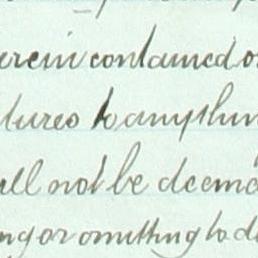 erein contained o
tures to anythin
all not be deeme
ng or omitting to d